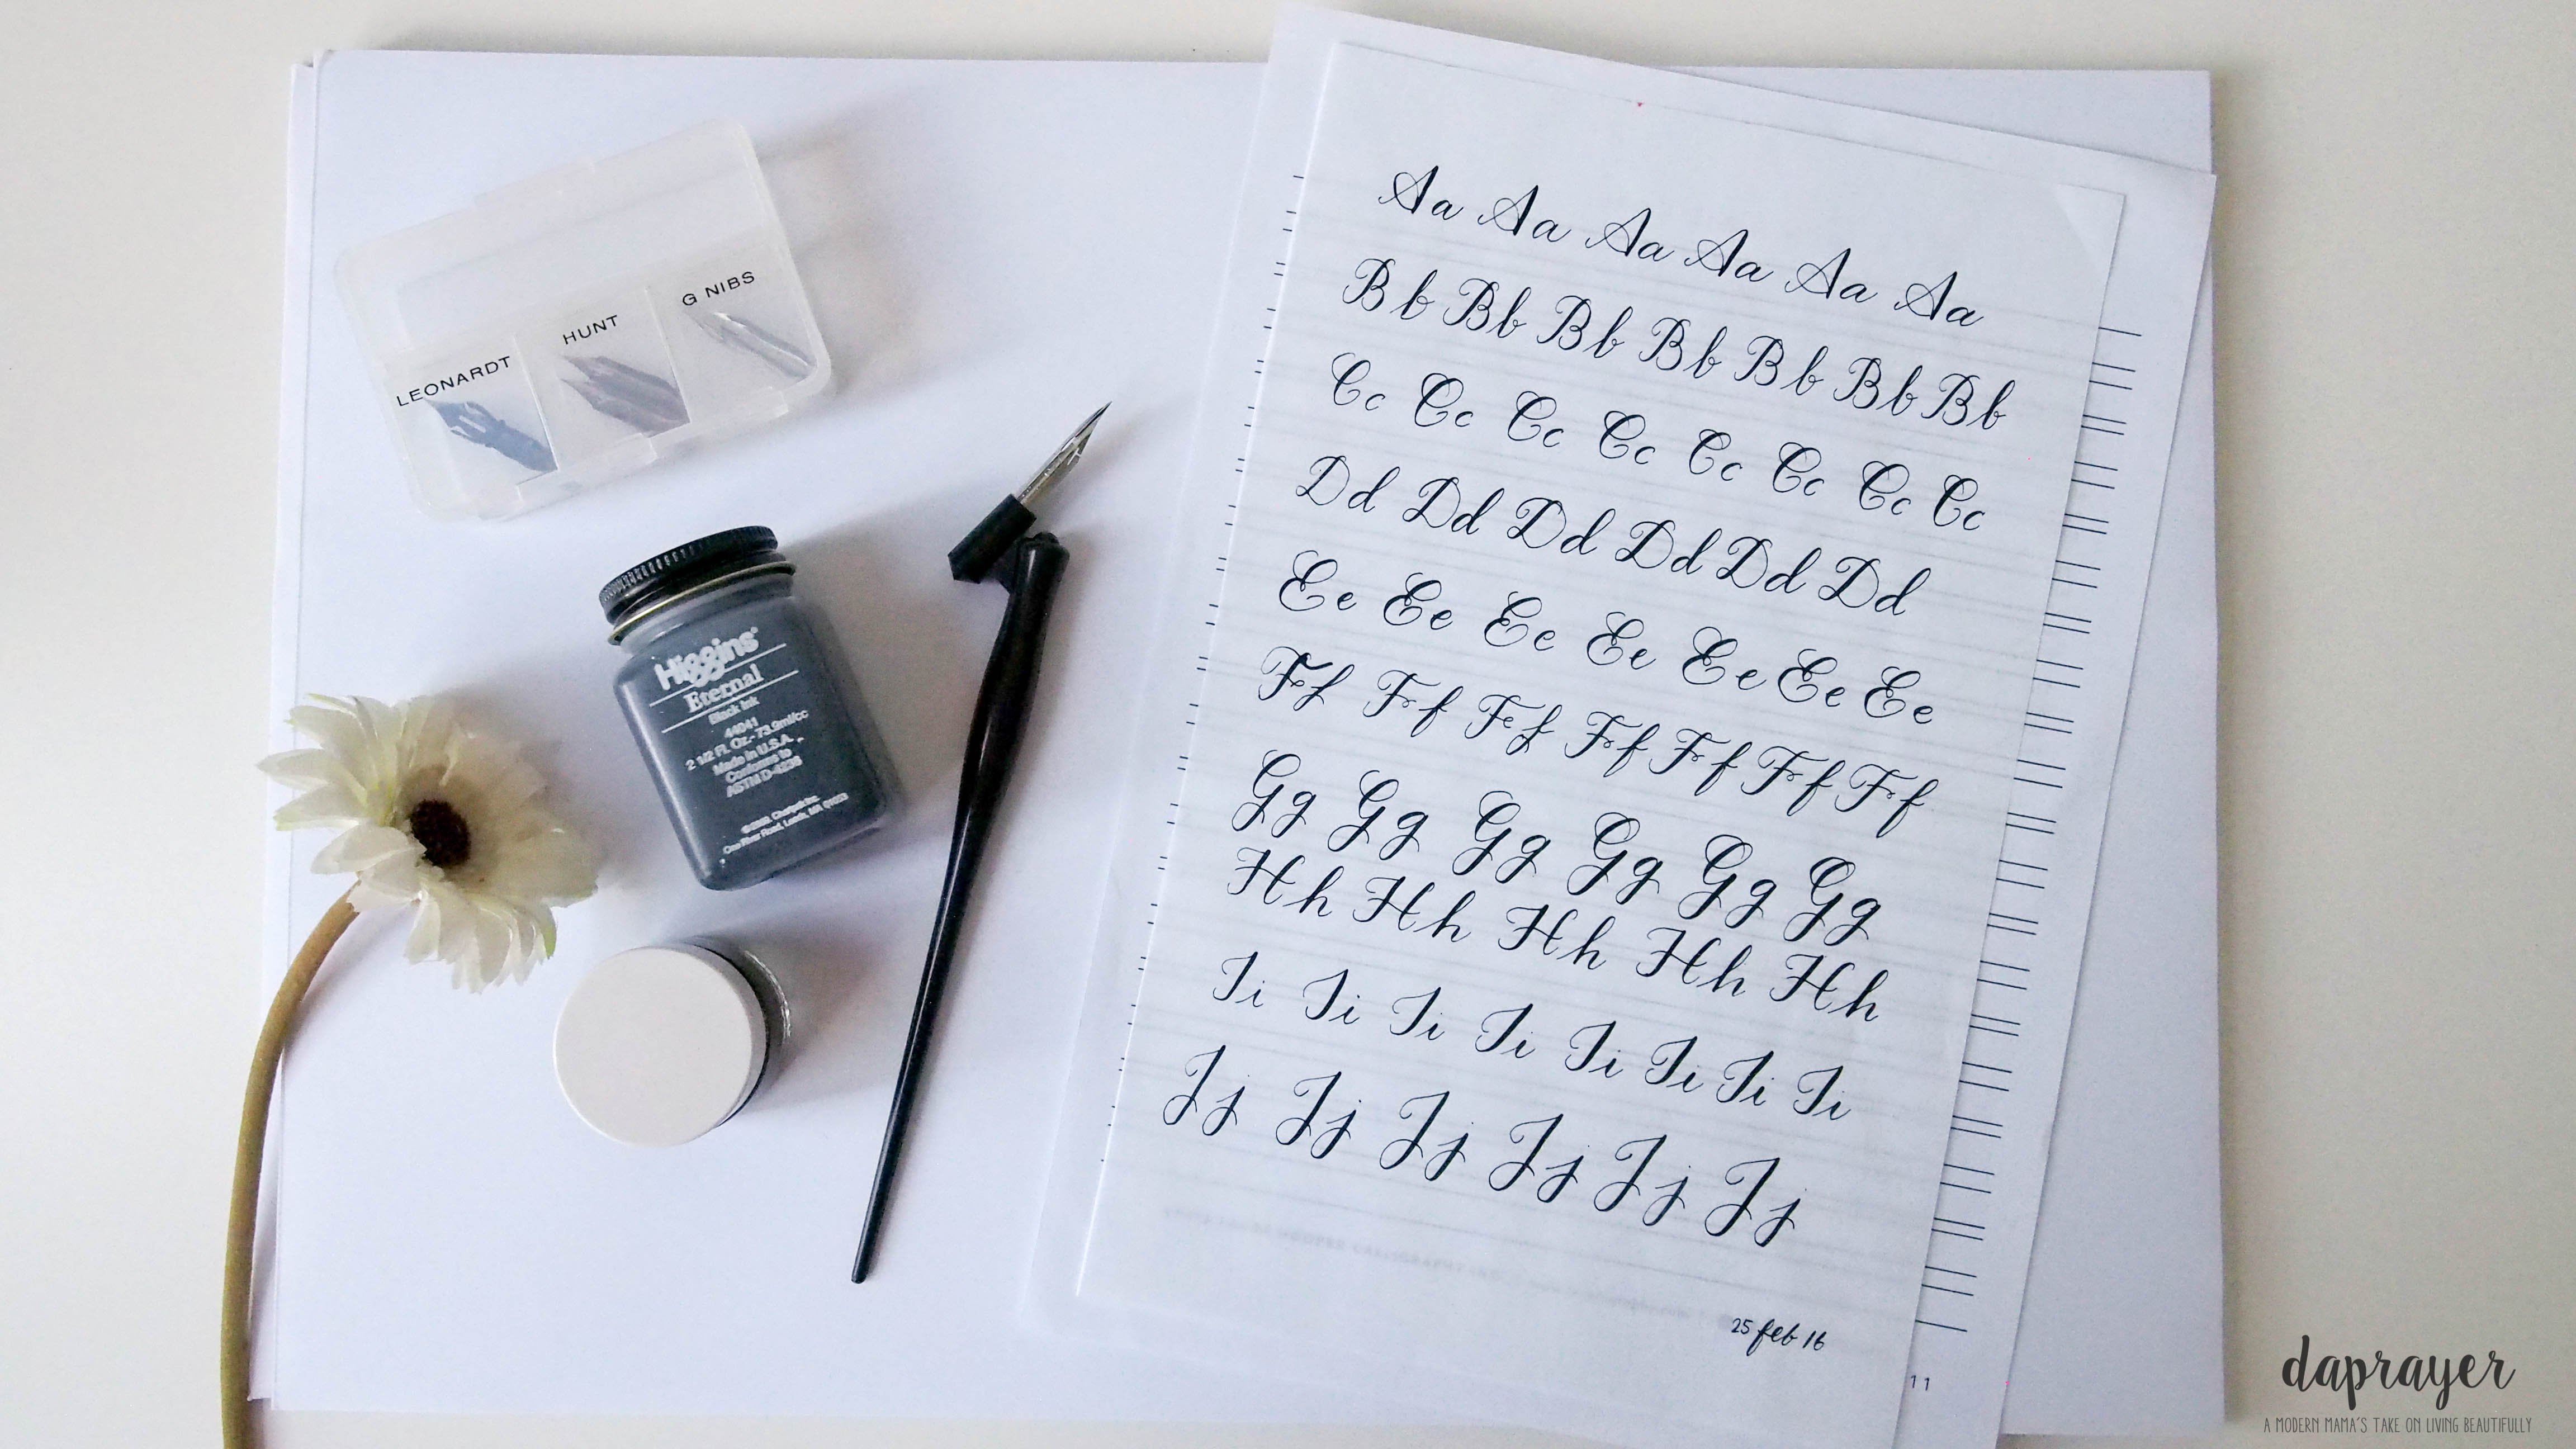 LEONARDT HUNT G NIBS
Higgins®
Eternal
Black Ink
44041
2 1/2 Fl. Oz.- 73.9ml/cc
Made in U.S.A.
Conforms to
ASTM D-4236
Chartpak Inc.
One River Road, Leeds, MA 01053
Aa Aa Aa Aa Aa Aa
Bb Bb Bb Bb Bb Bb Bb
Cc Cc Cc Cc Cc Cc Cc Cc
Dd Dd Dd Dd Dd Dd
Ee Ee Ee Ee Ee Ee Ee
Ff Ff Ff Ff Ff Ff Ff
Gg Gg Gg Gg Gg Gg
Hh Hh Hh Hh Hh
Ii Ii Ii Ii Ii Ii Ii Ii
Jj Jj Jj Jj Jj Jj
25 feb 16
11
daprayer
A MODERN MAMA'S TAKE ON LIVING BEAUTIFULLY